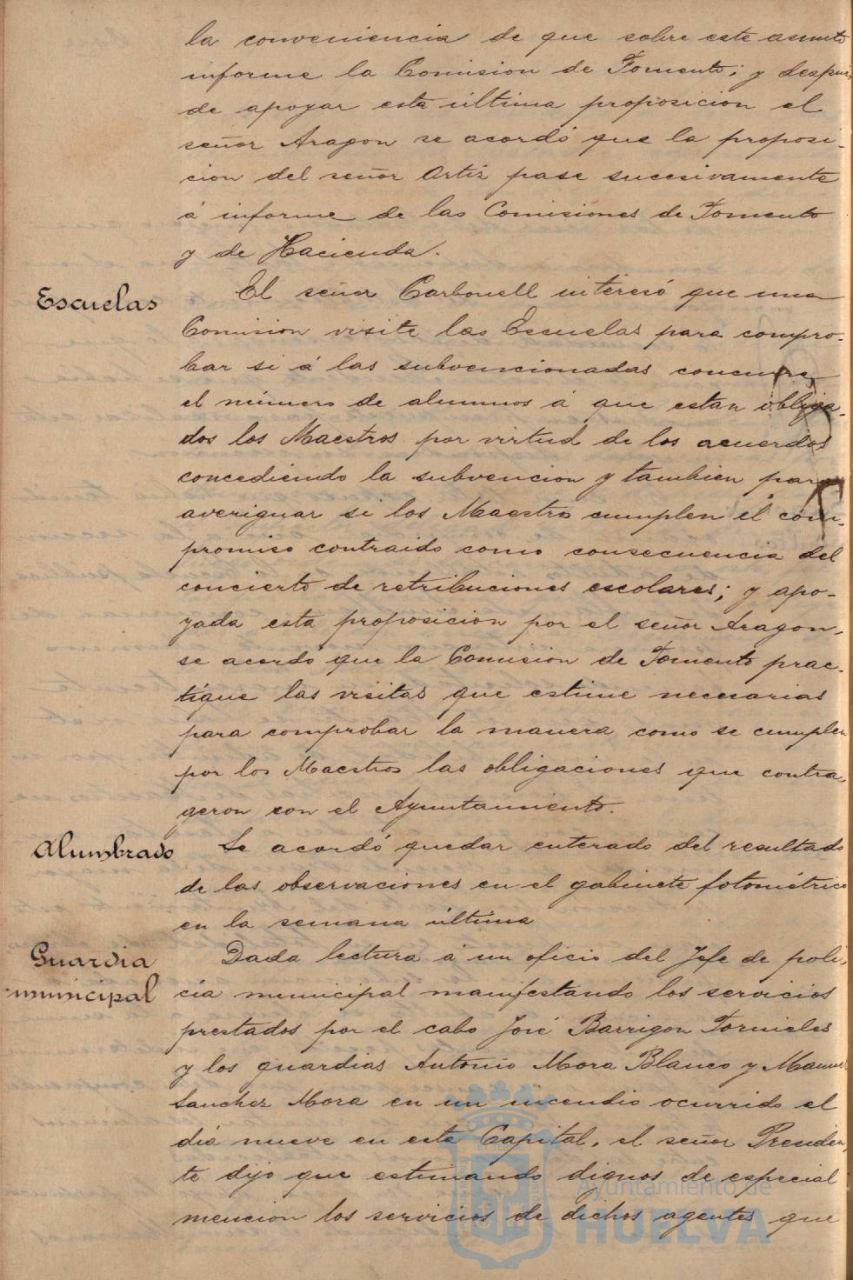 la conveniencia de que sobre este asunto
informe la Comision de Fomento; y despues
de apoyar esta última proposicion el
señor Aragon se acordó que la proposi-
cion del señor Ortiz pase sucesivamente
á informe de las Comisiónes de Fomento
y de Hacienda.
Escuelas
El señor Carbonell interesó que una
Comision visite las Escuelas para compro-
bar si á las subvencionadas concurre
el número de alumnos á que estan obliga-
dos los Maestros por virtud de los acuerdos
concediendo la subvencion y tambien para
averiguar si los Maestros cumplen el com-
promiso contraido como consecuencia del
concierto de retribuciones escolares; y apo-
yada esta proposicion por el señor Aragon,
se acordó que la Comision de Fomento prac-
tique las visitas que estime necesarias
para comprobar la manera como se cumplen
por los Maestros las obligaciones que contra-
geron con el Ayuntamiento.
Alumbrado
Se acordó quedar enterado del resultado
de las observaciones en el gabinete fotométrico
en la semana última
Guardia
municipal
Dada lectura á un oficio del Jefe de poli-
cía municipal manifestando los servicios
prestados por el cabo José Barrigon Tornieles
y los guardias Antonio Mora Blanco y Manuel
Sanchez Mora en un incendio ocurrido el
dia nueve en esta Capital, el señor Presiden-
te dijo que estimando dignos de especial
mencion los servicios de dichos agentes que
Ayuntamiento de
HUELVA